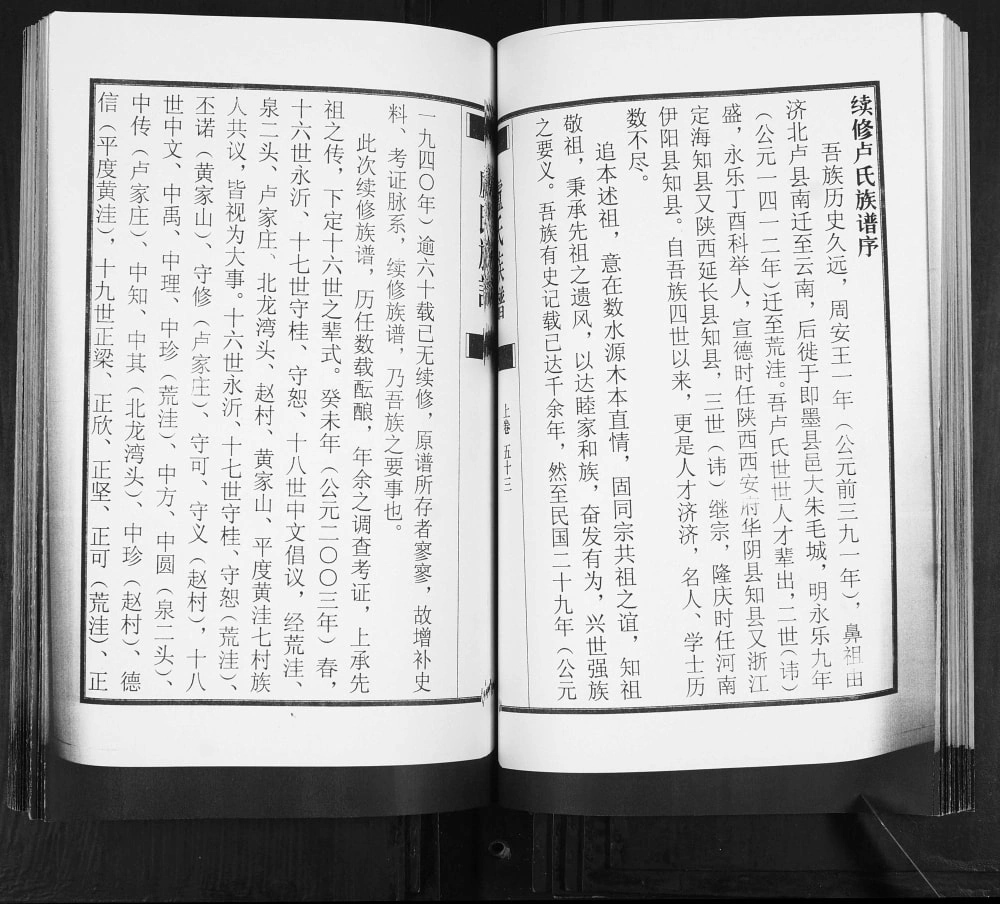 续修卢氏族谱序
吾族历史久远，周安王一年（公元前三九一年），鼻祖田
济北卢县南迁至云南，后徙于即墨县邑大朱毛城，明永乐九年
（公元一四一二年）迁至荒洼。吾卢氏世世人才辈出，二世（讳）
盛，永乐丁酉科举人，宣德时任陕西西安府华阴县知县又浙江
定海知县又陕西延长县知县，三世（讳）继宗，隆庆时任河南
伊阳县知县。自吾族四世以来，更是人才济济，名人、学士历
数不尽。
追本述祖，意在数水源木本直情，固同宗共祖之谊，知祖
敬祖，秉承先祖之遗风，以达睦家和族，奋发有为，兴世强族
之要义。吾族有史记载已达千余年，然至民国二十九年（公元
上卷 五十三
一九四〇年）逾六十载已无续修，原谱所存者寥寥，故增补史
料、考证脉系，续修族谱，乃吾族之要事也。
此次续修族谱，历任数载酝酿，年余之调查考证，上承先
祖之传，下定十六世之辈式。癸未年（公元二〇〇三年）春，
十六世永沂、十七世守桂、守恕、十八世中文倡议，经荒洼、
泉二头、卢家庄、北龙湾头、赵村、黄家山、平度黄洼七村族
人共议，皆视为大事。十六世永沂、十七世守桂、守恕（荒洼）、
丕诺（黄家山）、守修（卢家庄）、守可、守义（赵村），十八
世中文、中禹、中理、中珍（荒洼）、中方、中圆（泉二头）、
中传（卢家庄）、中知、中其（北龙湾头）、中珍（赵村）、德
信（平度黄洼），十九世正梁、正欣、正坚、正可（荒洼）、正